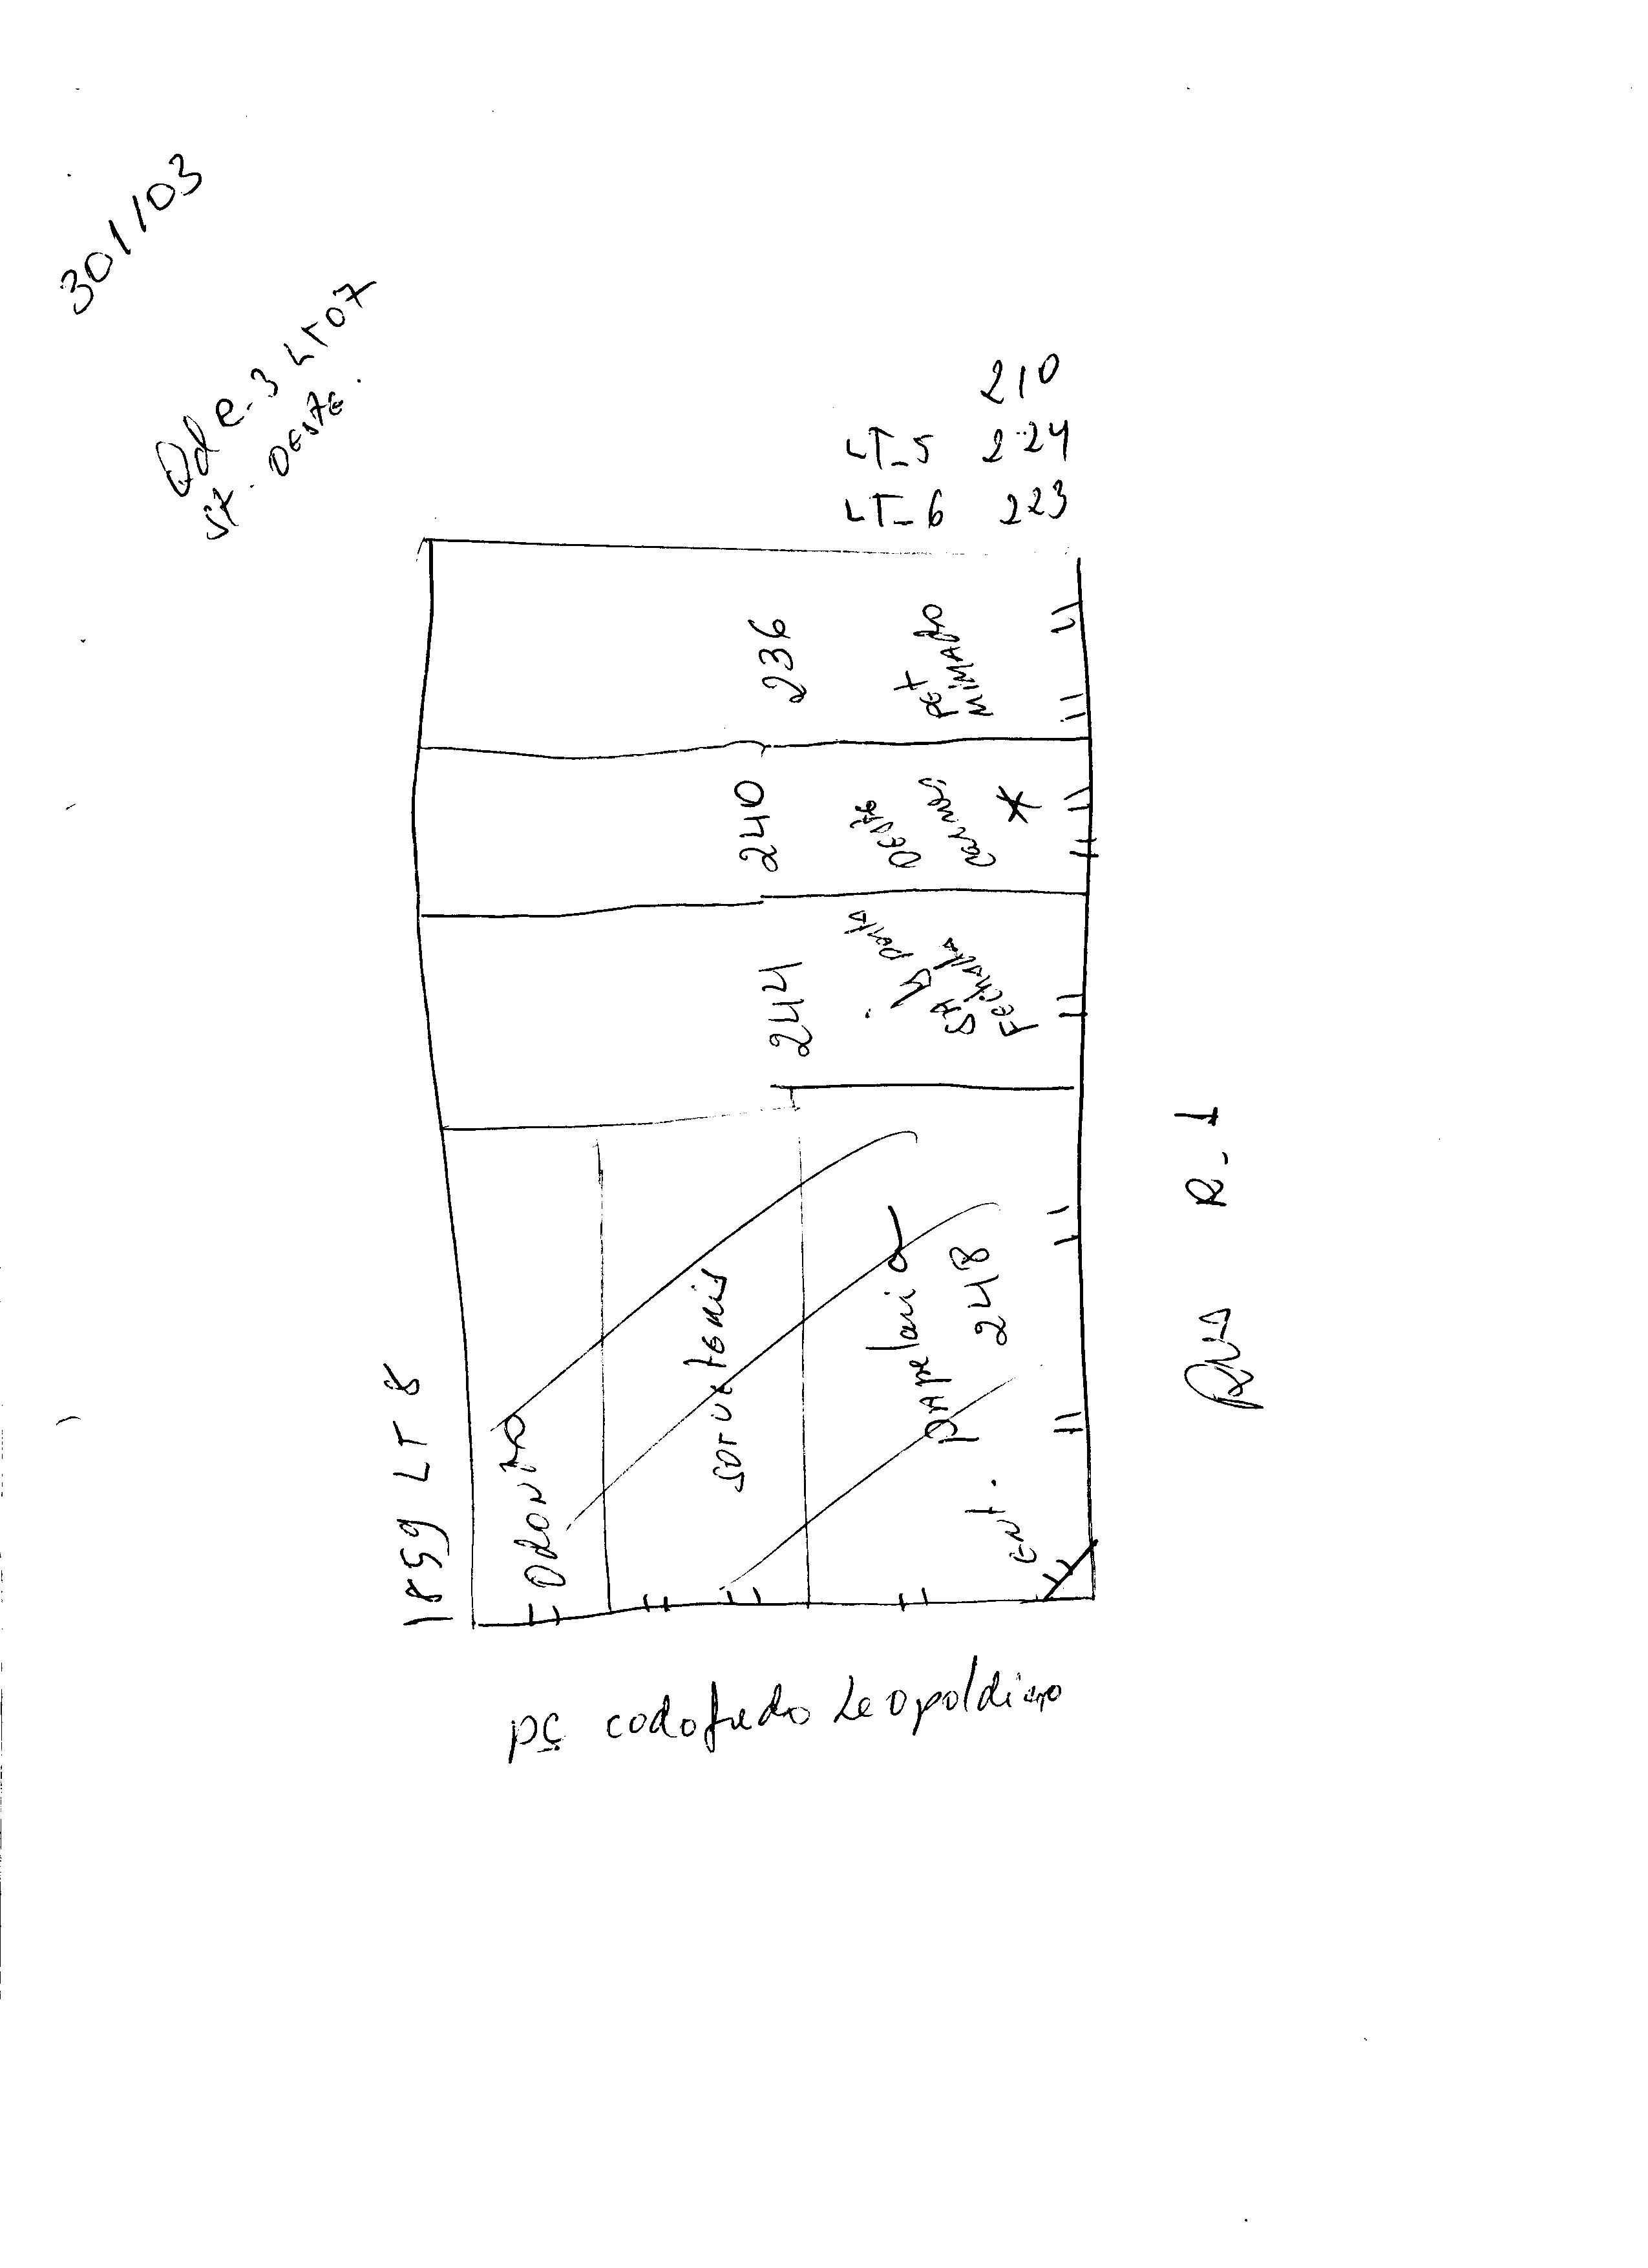 301/03
Qd e-3 LT07
St. OESTE.
210
LT-5 224
LT-6 223
236
Pet
MiMADO
240
OESTE
carnes
*
244
SALA porta
Fechada
1859 LT 8
ODONTO
sorveteria
papelaria
248
ent.
Rua R-1
pç codofredo Leopoldino